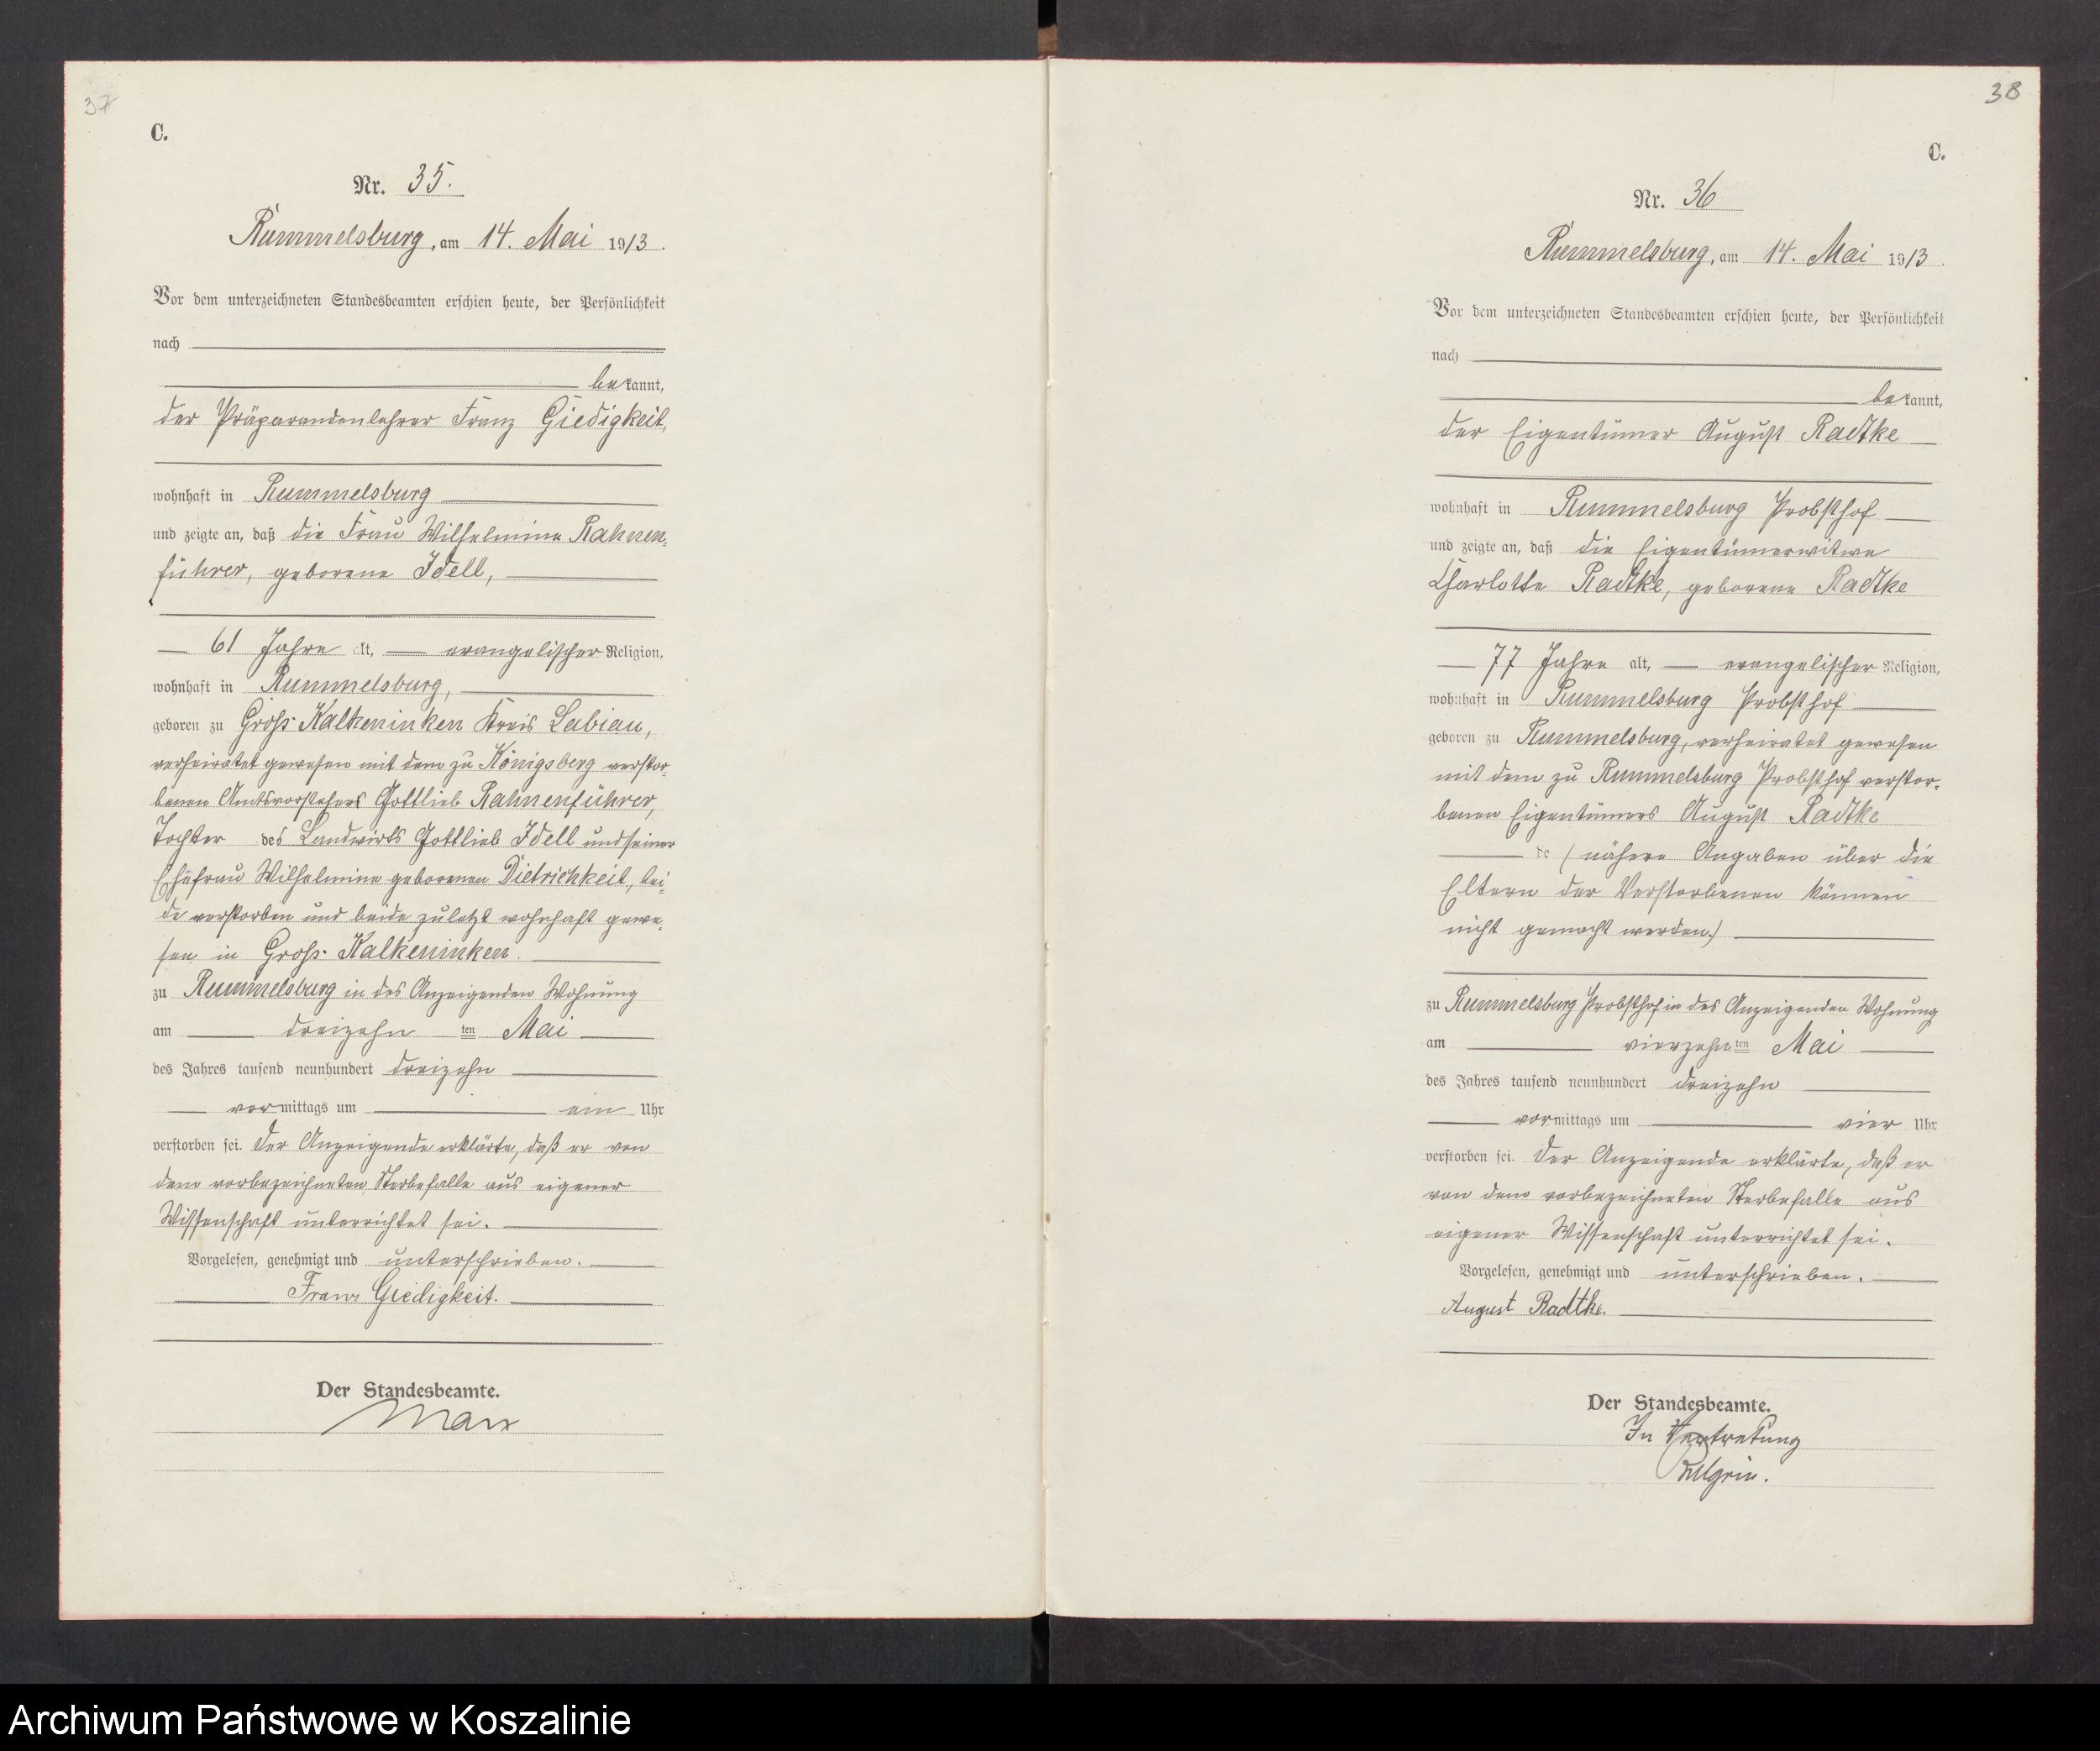 37
C.
Nr. 35.
Rummelsburg, am 14. Mai 1913.
Vor dem unterzeichneten Standesbeamten erschien heute, der Persönlichkeit
nach
bekannt,
der Präparandenlehrer Franz Giedigkeit,
wohnhaft in Rummelsburg
und zeigte an, daß die Frau Wilhelmine Rahnen-
führer, geborene Idell,
61 Jahre alt, evangelischer Religion,
wohnhaft in Rummelsburg,
geboren zu Groß-Kalkeninken Kreis Labiau,
verheiratet gewesen mit dem zu Königsberg verstor-
benen Amtsvorstehers Gottlieb Rahnenführer,
Tochter des Landwirts Gottlieb Idell und seiner
Ehefrau Wilhelmine geborenen Dietrichkeit, bei-
de verstorben und beide zuletzt wohnhaft gewe-
sen in Groß-Kalkeninken.
zu Rummelsburg in des Anzeigenden Wohnung
am dreizehn ten Mai
des Jahres tausend neunhundert dreizehn
vormittags um ein Uhr
verstorben sei. Der Anzeigende erklärte, daß er von
dem vorbezeichneten Sterbefalle aus eigener
Wissenschaft unterrichtet sei.
Vorgelesen, genehmigt und unterschrieben.
Franz Giedigkeit.
Der Standesbeamte.
38
C.
Nr. 36
Rummelsburg, am 14. Mai 1913.
Vor dem unterzeichneten Standesbeamten erschien heute, der Persönlichkeit
nach
bekannt,
der Eigentümer August Radtke
wohnhaft in Rummelsburg Probsthof
und zeigte an, daß die Eigentümerwitwe
Charlotte Radtke, geborene Radtke
77 Jahre alt, evangelischer Religion,
wohnhaft in Rummelsburg Probsthof
geboren zu Rummelsburg, verheiratet gewesen
mit dem zu Rummelsburg Probsthof verstor-
benen Eigentümers August Radtke
de (nähere Angaben über die
Eltern der Verstorbenen können
nicht gemacht werden.)
zu Rummelsburg Probsthof in des Anzeigenden Wohnung
am vierzehn ten Mai
des Jahres tausend neunhundert dreizehn
vormittags um vier Uhr
verstorben sei. Der Anzeigende erklärte, daß er
von dem vorbezeichneten Sterbefalle aus
eigener Wissenschaft unterrichtet sei.
Vorgelesen, genehmigt und unterschrieben.
August Radtke.
Der Standesbeamte.
In Vertretung
Archiwum Państwowe w Koszalinie